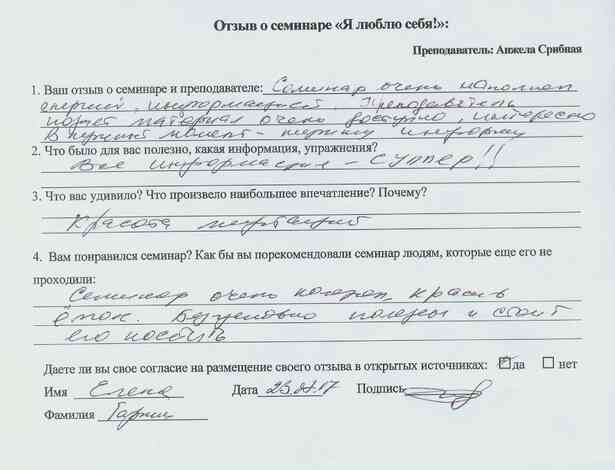 Отзыв о семинаре «Я люблю себя!»:
Преподаватель: Анжела Срибная
1. Ваш отзыв о семинаре и преподавателе: Семинар очень наполнен
енергией, информацией. Преподаватель
материал очень доступно, интересно
В нужный момент - нужную информ
2. Что было для вас полезно, какая информация, упражнения?
Вся информация - СУППЕР!!
3. Что вас удивило? Что произвело наибольшее впечатление? Почему?
Красота медитаций
4. Вам понравился семинар? Как бы вы порекомендовали семинар людям, которые еще его не
проходили:
Семинар очень красив
Безусловно полезен и стоит
его посетить
Даете ли вы свое согласие на размещение своего отзыва в открытых источниках: да нет
Имя Елена Дата Подпись
Фамилия